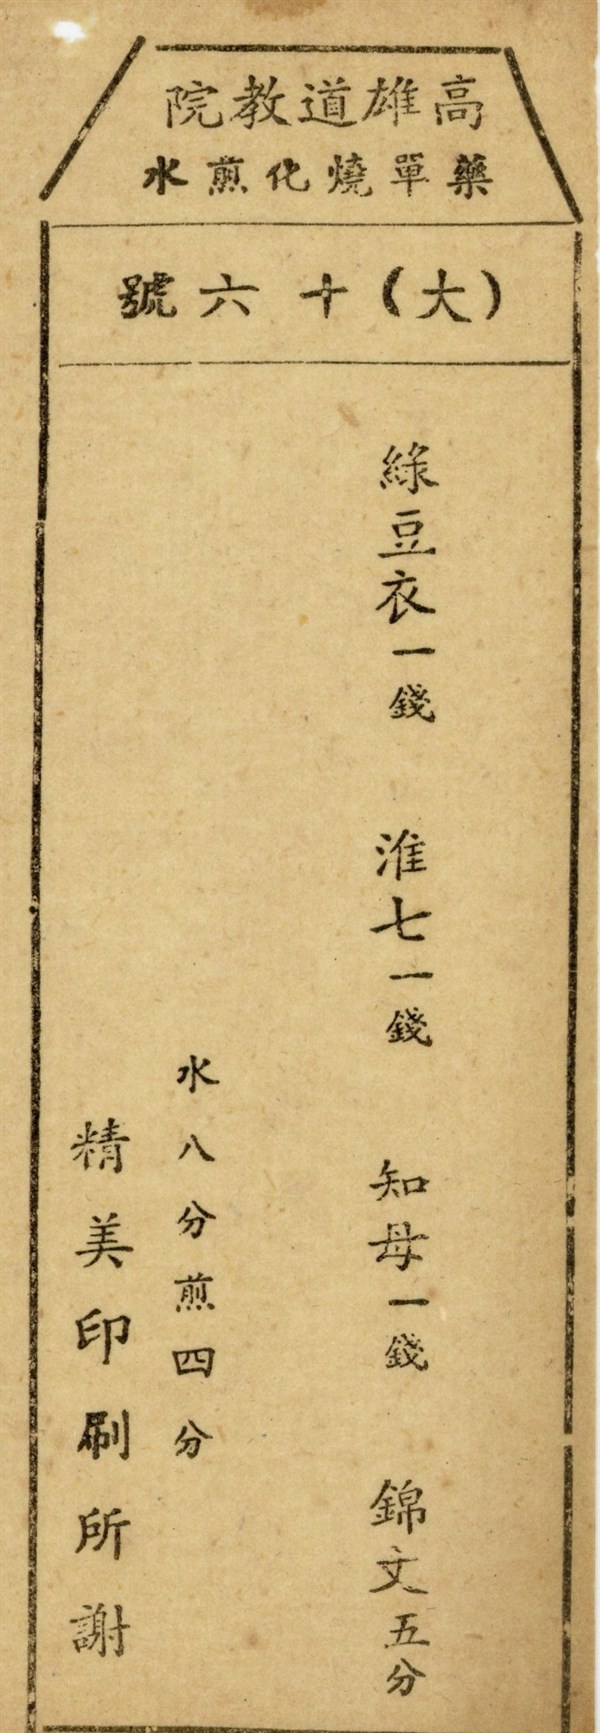 高雄道教院
藥單燒化煎水
(大)十六號
綠豆衣一錢 淮七一錢 知母一錢 錦文五分
水八分煎四分
精美印刷所謝